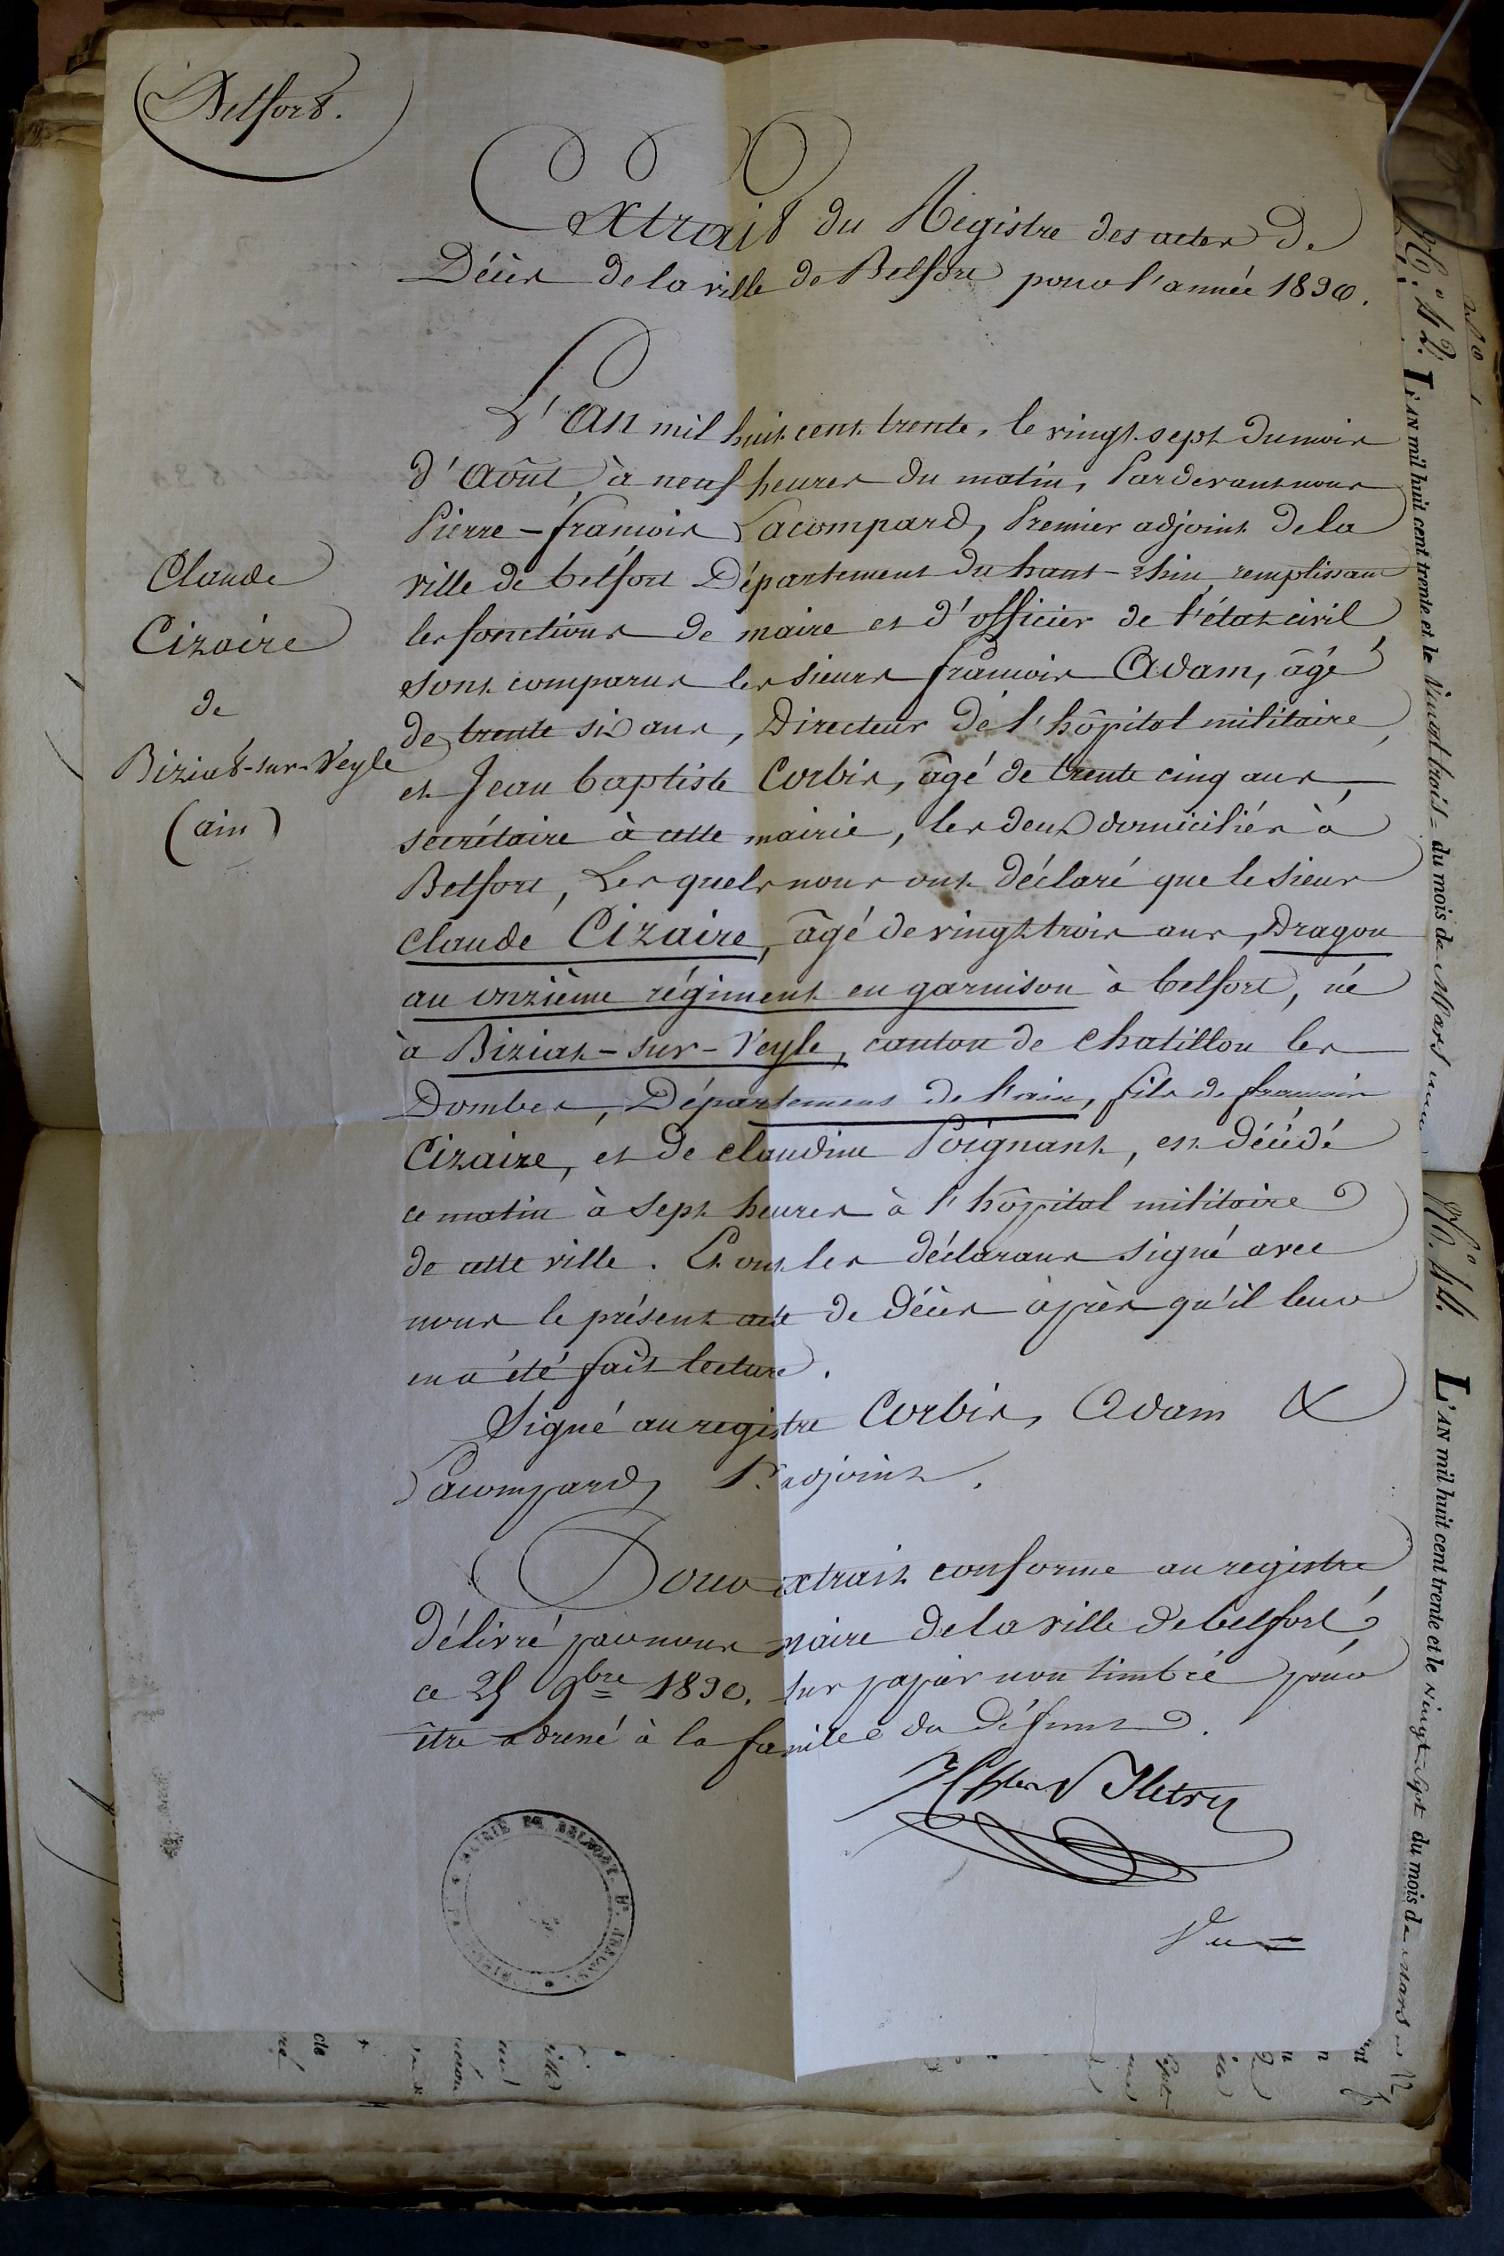 Belfort.
Extrait du Régistre des actes de
Décès de la ville de Belfort pour l'année 1830.
L'an mil huit cent trente, le vingt sept du mois
d'Août, à neuf heures du matin, Pardevant nous
Pierre-françois Lacompard, Premier adjoint de la
ville de belfort Département du haut-rhin, remplissant
les fonctions de maire et d'officier de l'état civil,
sont comparus les sieurs françois Adam, âgé
de trente six ans, Directeur de l'hôpital militaire,
et Jean baptiste Corbis, âgé de trente cinq ans,
secrétaire à cette mairie, les deux domiciliés à
Belfort, Les quels nous ont déclaré que le sieur
Claude Cizaire, âgé de vingt trois ans, Dragon
au onzième régiment en garnison à belfort, né
à Biziat-sur-Veyle, canton de chatillon les
Dombes, Département de l'ain, fils de françois
Cizaire, et de claudine Poignant, est décédé
ce matin à sept heures à l'hôpital militaire
de cette ville. Et ont les déclarans signé avec
nous le présent acte de décès après qu'il leur
en a été fait lecture.
Signé au registre Corbis, Adam &
Lacompard, 1.er adjoint.
Pour extrait conforme au registre
délivré par nous maire de la ville de belfort,
ce 25 9bre 1830. sur papier non timbré pour
être adressé à la famille du défunt.
Vu
Claude
Cizaire
de
Biziat-sur-Veyle
(ain)
MAIRIE DE BELFORT
N.o 42.
L'AN mil huit cent trente et le Vingt trois du mois de Mars
N.o 44.
L'AN mil huit cent trente et le vingt sept du mois de Mars